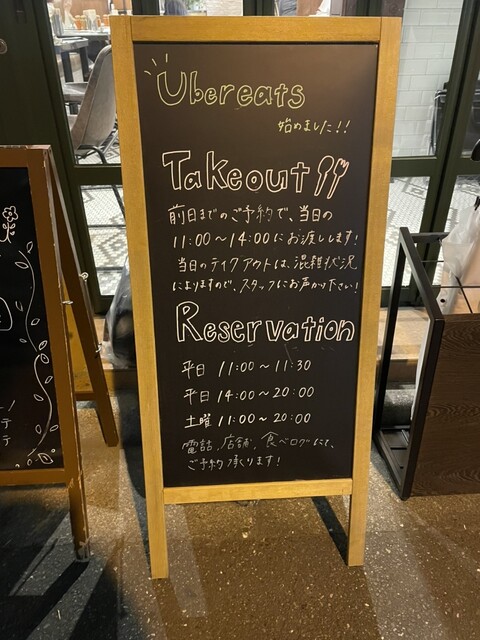 Ubereats
始めました!!
Takeout
前日までのご予約で、当日の
11:00〜14:00にお渡しします!
当日のテイクアウトは、混雑状況
によりますので、スタッフにお声かけ下さい!
Reservation
平日 11:00〜11:30
平日 14:00〜20:00
土曜 11:00〜20:00
電話、店舗、食べログにて、
ご予約承ります!